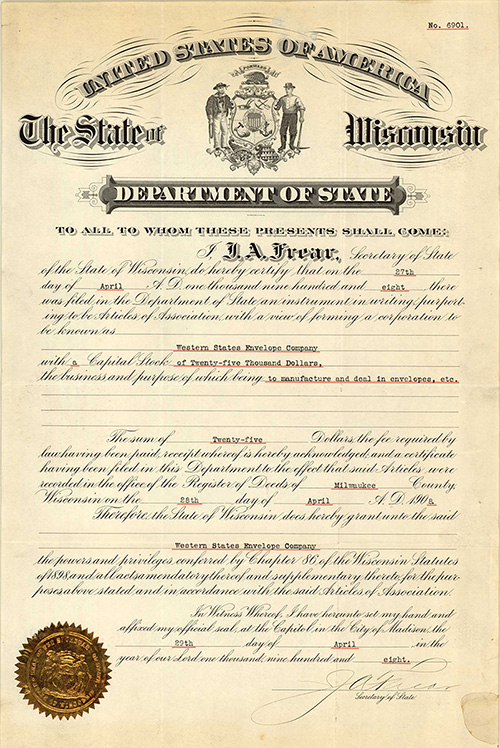 No. 6901.
UNITED STATES OF AMERICA
FORWARD
The State of Wisconsin
DEPARTMENT OF STATE
TO ALL TO WHOM THESE PRESENTS SHALL COME:
I, J.A. Frear, Secretary of State
of the State of Wisconsin, do hereby certify that on the 27th
day of April A.D. one thousand nine hundred and eight there
was filed in the Department of State an instrument in writing, purport-
ing to be Articles of Association, with a view of forming a corporation to
be known as
Western States Envelope Company
with a Capital Stock of Twenty-five Thousand Dollars,
the business and purpose of which being to manufacture and deal in envelopes, etc.
The sum of Twenty-five Dollars, the fee required by
law having been paid, receipt whereof is hereby acknowledged, and a certificate
having been filed in this Department to the effect that said Articles were
recorded in the office of the Register of Deeds of Milwaukee County,
Wisconsin on the 28th day of April A.D. 1908,
Therefore, the State of Wisconsin does hereby grant unto the said
Western States Envelope Company
the powers and privileges conferred by Chapter 86, of the Wisconsin Statutes
of 1898, and all acts amendatory thereof and supplementary thereto, for the pur-
poses above stated and in accordance with the said Articles of Association.
In Witness Whereof, I have hereunto set my hand and
affixed my official seal, at the Capitol in the City of Madison, the
29th day of April in the
year of our Lord one thousand, nine hundred and eight.
J A Frear
Secretary of State.